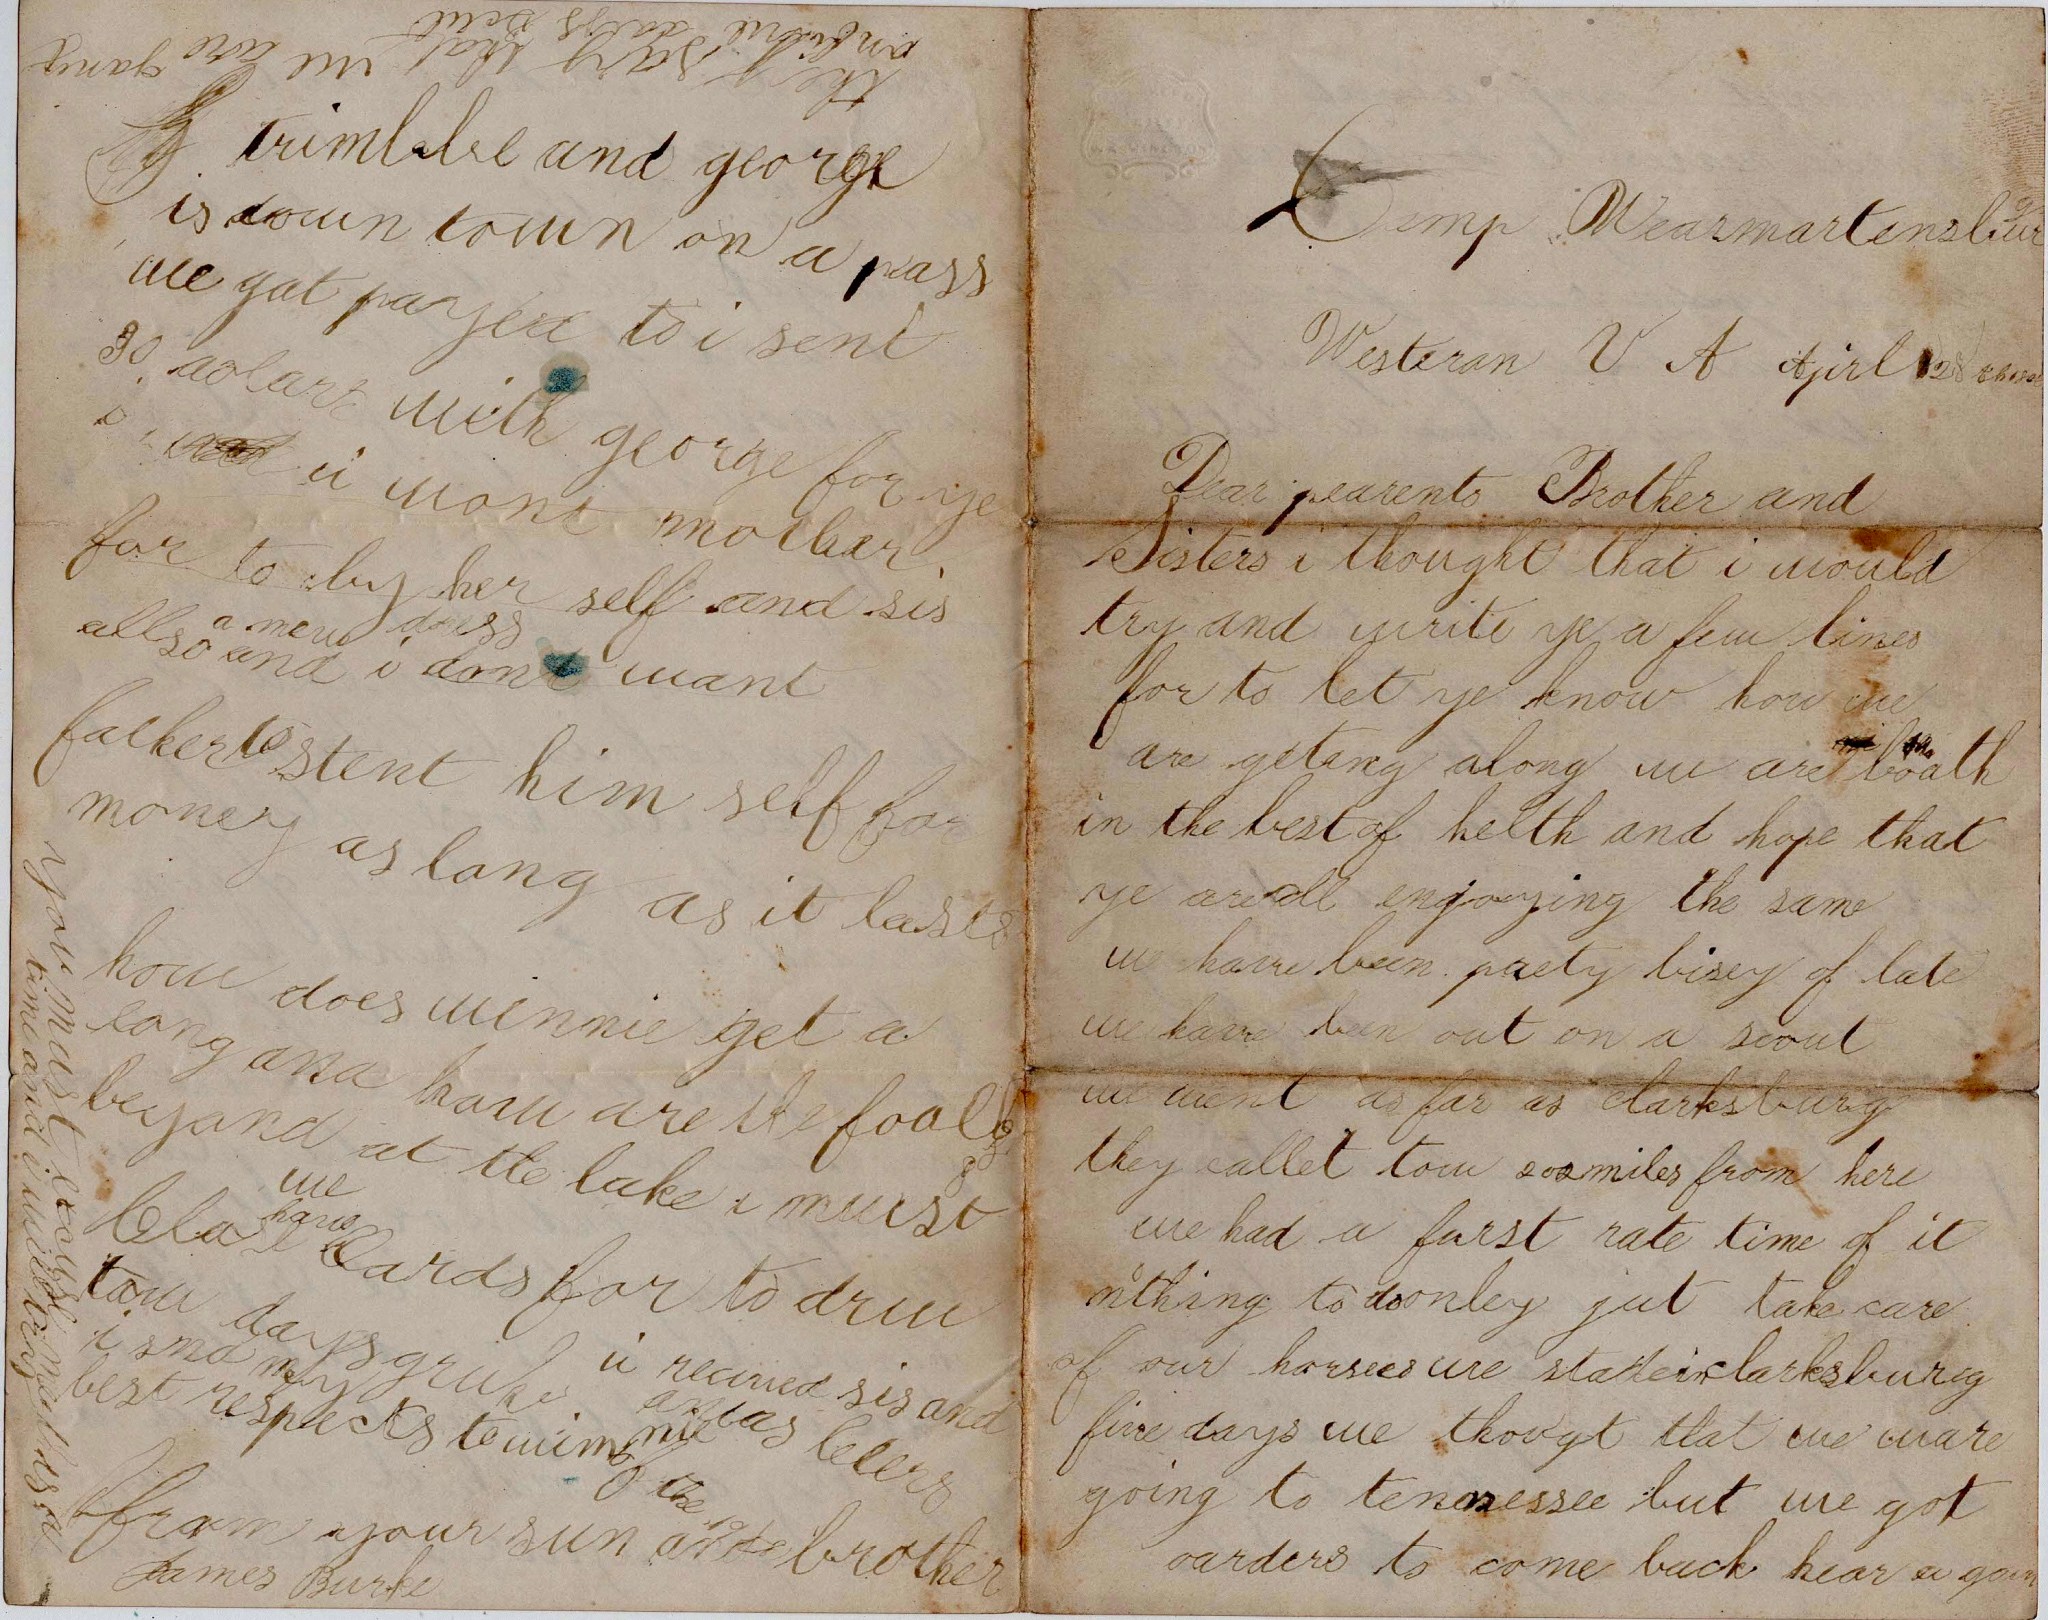 Camp Wearmartensbur
Westeran V A Apirl 28
Dear pearents Brother and
Sisters i thought that i would
try and write ye a few lines
for to let ye know how we
are geting along we are boath
in the best of helth and hope that
ye are all enjoying the same
we have been prety bisey of late
we have ben out on a scout
we went as far as clarksburg
they callet tow miles from here
we had a farst rate time of it
nothing to do onley jut take care
of our horsees we staed in clarksburg
five days we thougt that we ware
going to tennessee but we got
oarders to come back hear a gain
they say that we are
trimble and george
is down town on a pass
we gat payed to i sent
30 dolars with george for ye
i wont mother
for to buy her self and sis
a new dress
allso and i dont want
father to stent him self for
money as long as it lasts
how does winnie get a
long and how are the foalks
beyand at the lake i must
Clos we have Cards for to drew
tow days i recived sis and
i snd my
best respects to winnie leters
of the 19
from your sun and brother
James Burke
you must excuse me this
time and i will